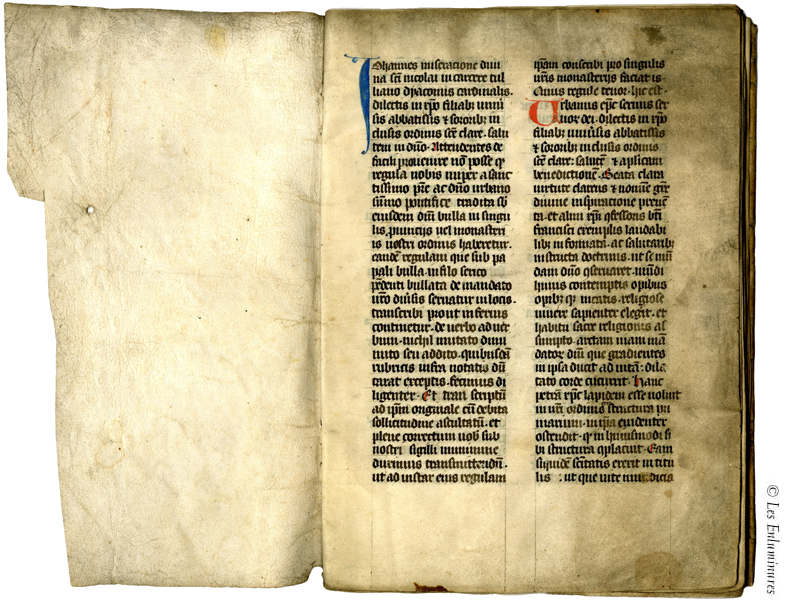 Johannes miseracione diui
na sc̄i nicolai in carcere tul
liano dyaconus cardinalis.
dilectis in xp̄o filiabȝ uniuͥ
sis abbatissis ⁊ sororibȝ in
clusis ordinis sc̄e clare. salu
tem in dn̄o. Attendentes de
facili prouenire nō posse qͥ
regula nobis nuper a sanc
tissimo pr̄e ac dn̄o urbano
sūmo pontifice tradita sȝ
eiusdem dn̄i bulla in singu
lis
is uostri ordinis haberetur.
eandē regulam que sub pa
pali bulla in filo serico
pͤdenti bullata de mandato
nr̄o diuͥsis seruatur in locis.
transcribi prout inferius
continetur. de uerbo ad uer
bum. nichil mutato dimi
nuto seu addito. quibusdā
rubricis infra notatis dū
taxat exceptis. fecimus di
ligenter. Et tran scriptū
ad ipm̄ originale cū debita
sollicitudine ascultatū. et
plene correctum uob̄ sub
nostri sigilli munimine
duximus transmittendū.
ut ad instar eius regulam
ipsam conscribi pro singulis
ur̄is monasterijs faciatis.
Cuius regule tenor. hic est.
Urbanus ep̄c seruus ser
uor dei. dilectis in xp̄o
filiabȝ uniuͥsis abbatissis
⁊ sororibȝ inclusis ordinis
sc̄e clare: salutē ⁊ ap̄licam
benedictionē. Beata clara
uirtute clarens ⁊ nomine
diuine inspiracione preuē
ta. et almi xp̄i ꝯfessoris bt̄i
francisci exemplis laudabi
libȝ informata. ac salutaribȝ
instructa doctrinis. ut se mū
dam dn̄o ꝯseruaret. mūdi
huius contemptis opibus
religiose
uiuere sapienter elegit. et
habitu sacre religionis as
sumpto. artam uiam mā
datorͣ dn̄i que gradientes
in ipsa ducit ad uitā: dila
tato corde cucurrit. Hanc
petrā xp̄c lapidem esse uoluit
in ur̄i ordinis structura pri
marium. in ip̄a euidenter
ostendit. qͥ in huiusmodi si
bi structura ꝯplacuit. Eam
siquidē sc̄itatis erexit in titu
lis: ut que uite mūdicia
© Les Enluminures